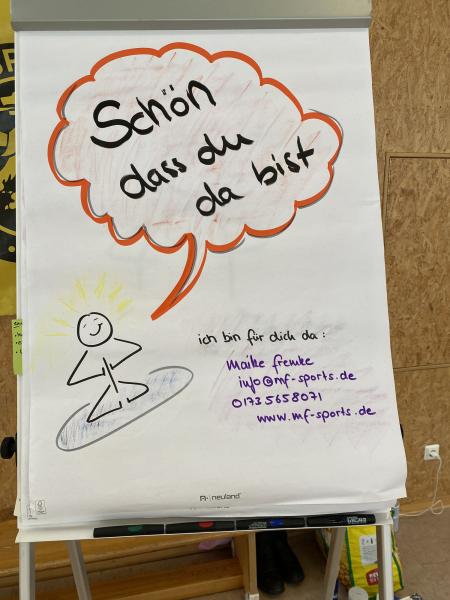 Schön
dass du
da bist
ich bin für dich da:
Maike Fremke
info@mf-sports.de
01735658071
www.mf-sports.de
neuland